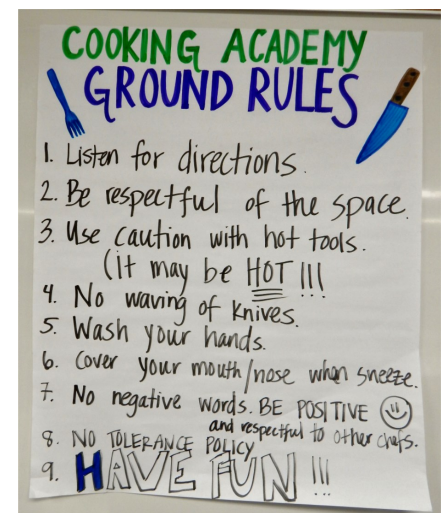 COOKING ACADEMY
GROUND RULES
1. Listen for directions.
2. Be respectful of the space.
3. Use caution with hot tools.
(it may be HOT !!!
4. No waving of knives.
5. Wash your hands.
6. Cover your mouth/nose when sneeze.
7. No negative words. BE POSITIVE
and respectful to other chefs.
8. NO TOLERANCE POLICY
9. HAVE FUN !!!